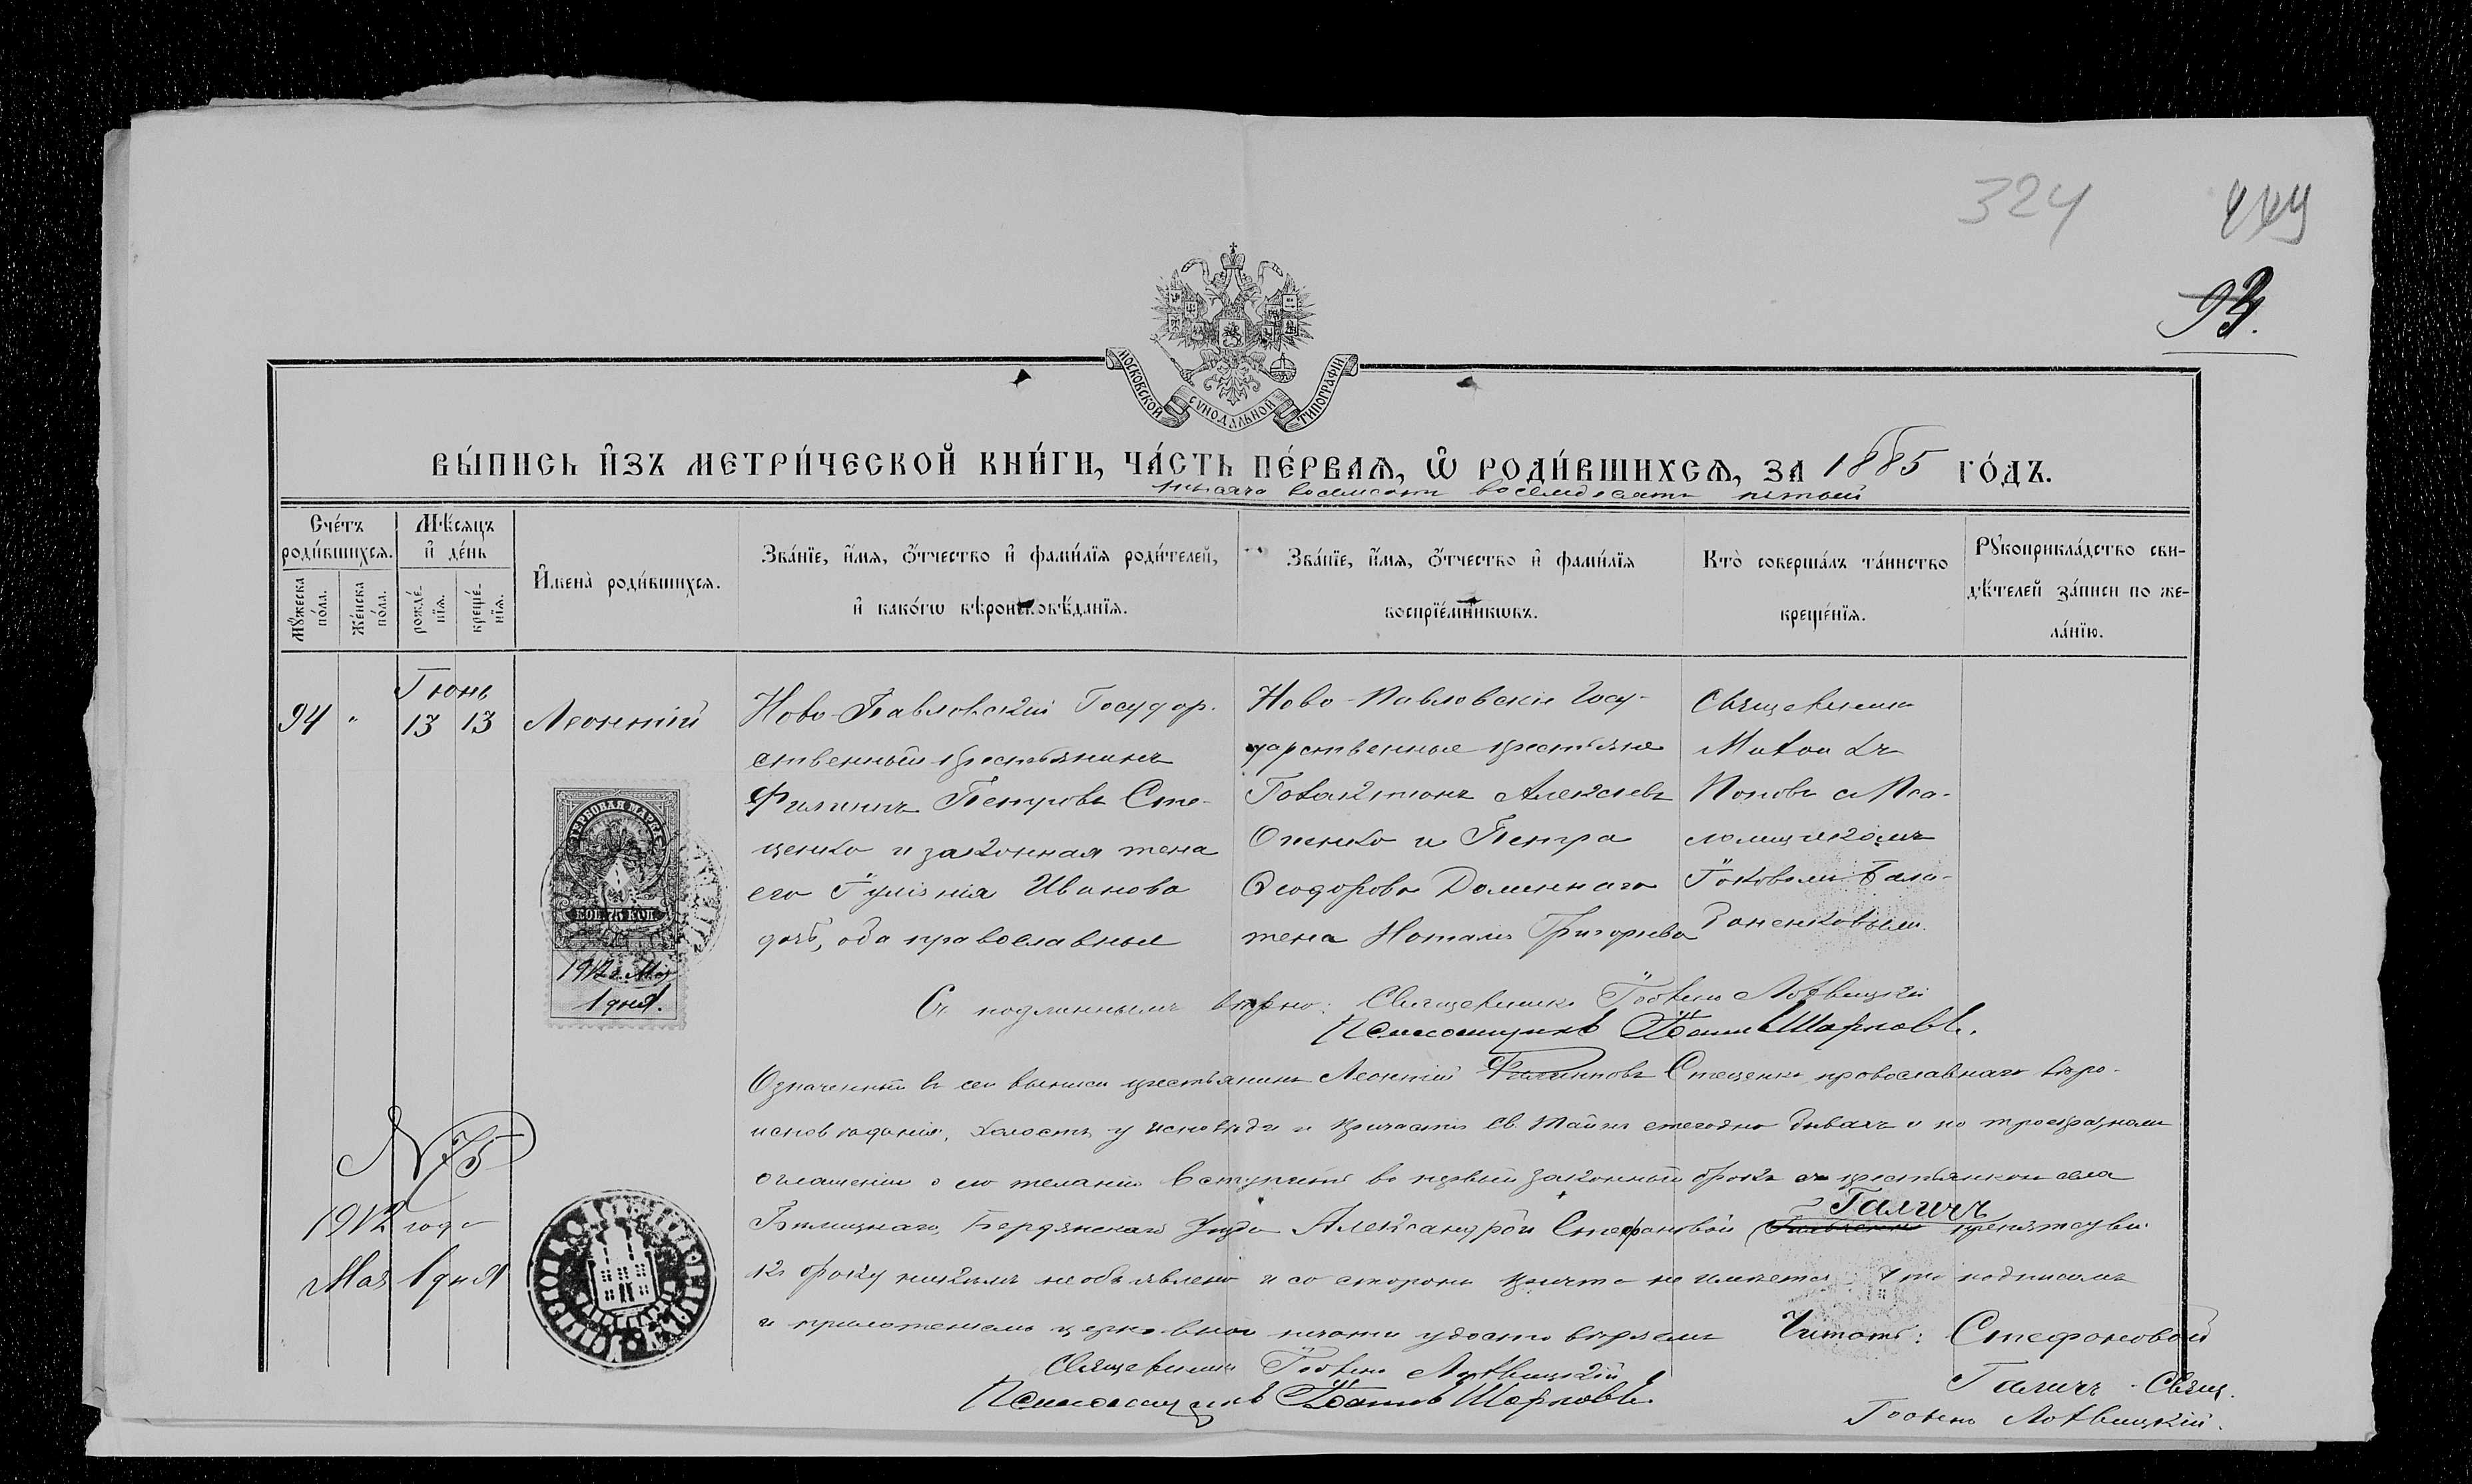 324
93.
МОСКОВСКОЙ СѴНОДАЛЬНОЙ ТИПОГРАФІИ
ВЫ́ПИСЬ И҆ЗЪ МЕТРИ́ЧЕСКОЙ КНИ́ГИ, ЧА́СТЬ ПЕ́РВАѦ, Ѽ РОДИ́ВШИХСѦ, ЗА 1885 ГО́ДЪ.
тысяча восемьсотъ восемьдесятъ пятый
Сче́тъ родившихсѧ.
Мѹ́жеска по́ла.
Же́нска по́ла.
Мѣ́сѧцъ и҆ де́нь
рожде́-нїѧ.
креще́-нїѧ.
И҆мена̀ роди́вшихсѧ.
Зва́нїе, и҆́мѧ, ѻ҆́тчество и҆ фами́лїѧ роди́телей,
и҆ како́гѡ вѣроисповѣ́данїѧ.
Зва́нїе, и҆́мѧ, ѻ҆́тчество и҆ фами́лїѧ
воспрїе́мникѡвъ.
Кто̀ соверша́лъ та́инство
креще́нїѧ.
Рѹкоприкла́дство сви-
дѣ́телей за́писи по же-
ла́нїю.
94
"
Іюнь
13 13
Леонтій
Ново-Павловскій Государ-
ственный крестьянинъ
Филиппъ Петровъ Сте-
ценко и законная жена
его Іуліанія Иванова
дочь, оба православные
Ново-Павловскіе Госу-
дарственные крестьяне
Галактіонъ Алексіевъ
и Петра
Ѳеодорова
жена Наталія Григорьева
Священникъ
Попові с Пса-
ломщикомъ
Іаковомъ
ГЕРБОВАЯ МАРКА
КОП. 75 КОП.
1912 г. Мая
1 дня.
Съ подлиннымъ вѣрно: Священникъ
Псаломщикъ Іоаннъ Шарповъ.
Означенный въ сей выписи крестьянинъ Леонтій Филипповъ Стеценко, православнаго вѣро-
исповѣданія, холостъ, у исповѣди и Причастія Св. Таинъ ежегодно бывалъ и по троекратномъ
оглашеніи о его желаніи вступить во первый законный бракъ съ крестьянкою села
Бердянскаго уѣзда Александрой Стефановой Галичъ препятствій
къ браку никѣмъ необъявлено и со стороны причта не имѣется что подписомъ
и приложеніемъ церковной печати удостовѣряемъ Читать: Стефановой
Галичъ - Свящ.
Священникъ
Псаломщикъ Іоаннъ Шарповъ.
N 75
1912 года
Мая 1 дня